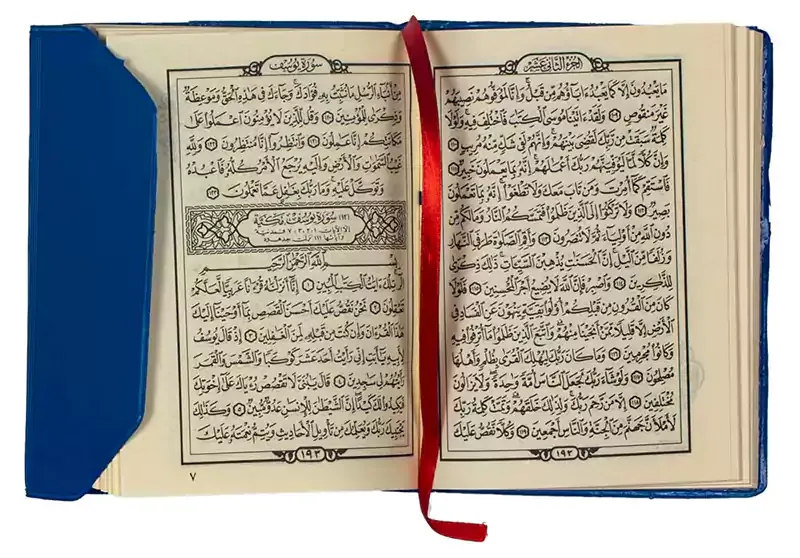 الجزء الثاني عشر
مَا يَعْبُدُونَ إِلَّا كَمَا يَعْبُدُ ءَابَآؤُهُم مِّن قَبْلُ وَإِنَّا لَمُوَفُّوهُمْ نَصِيبَهُمْ
غَيْرَ مَنقُوصٍ ١٠٩ وَلَقَدْ ءَاتَيْنَا مُوسَى ٱلْكِتَٰبَ فَٱخْتُلِفَ فِيهِ وَلَوْلَا
كَلِمَةٌ سَبَقَتْ مِن رَّبِّكَ لَقُضِىَ بَيْنَهُمْ وَإِنَّهُمْ لَفِى شَكٍّ مِّنْهُ مُرِيبٍ ١١٠
وَإِنَّ كُلًّا لَّمَّا لَيُوَفِّيَنَّهُمْ رَبُّكَ أَعْمَٰلَهُمْ إِنَّهُۥ بِمَا يَعْمَلُونَ خَبِيرٌ ١١١
فَٱسْتَقِمْ كَمَآ أُمِرْتَ وَمَن تَابَ مَعَكَ وَلَا تَطْغَوْا۟ إِنَّهُۥ بِمَا تَعْمَلُونَ
بَصِيرٌ ١١٢ وَلَا تَرْكَنُوٓا۟ إِلَى ٱلَّذِينَ ظَلَمُوا۟ فَتَمَسَّكُمُ ٱلنَّارُ وَمَا لَكُم مِّن
دُونِ ٱللَّهِ مِنْ أَوْلِيَآءَ ثُمَّ لَا تُنصَرُونَ ١١٣ وَأَقِمِ ٱلصَّلَوٰةَ طَرَفَىِ ٱلنَّهَارِ
وَزُلَفًا مِّنَ ٱلَّيْلِ إِنَّ ٱلْحَسَنَٰتِ يُذْهِبْنَ ٱلسَّيِّـَٔاتِ ذَٰلِكَ ذِكْرَىٰ
لِلذَّٰكِرِينَ ١١٤ وَٱصْبِرْ فَإِنَّ ٱللَّهَ لَا يُضِيعُ أَجْرَ ٱلْمُحْسِنِينَ ١١٥ فَلَوْلَا
كَانَ مِنَ ٱلْقُرُونِ مِن قَبْلِكُمْ أُو۟لُوا۟ بَقِيَّةٍ يَنْهَوْنَ عَنِ ٱلْفَسَادِ فِى
ٱلْأَرْضِ إِلَّا قَلِيلًا مِّمَّنْ أَنجَيْنَا مِنْهُمْ وَٱتَّبَعَ ٱلَّذِينَ ظَلَمُوا۟ مَآ أُتْرِفُوا۟ فِيهِ
وَكَانُوا۟ مُجْرِمِينَ ١١٦ وَمَا كَانَ رَبُّكَ لِيُهْلِكَ ٱلْقُرَىٰ بِظُلْمٍ وَأَهْلُهَا
مُصْلِحُونَ ١١٧ وَلَوْ شَآءَ رَبُّكَ لَجَعَلَ ٱلنَّاسَ أُمَّةً وَٰحِدَةً وَلَا يَزَالُونَ
مُخْتَلِفِينَ ١١٨ إِلَّا مَن رَّحِمَ رَبُّكَ وَلِذَٰلِكَ خَلَقَهُمْ وَتَمَّتْ كَلِمَةُ رَبِّكَ
لَأَمْلَأَنَّ جَهَنَّمَ مِنَ ٱلْجِنَّةِ وَٱلنَّاسِ أَجْمَعِينَ ١١٩ وَكُلًّا نَّقُصُّ عَلَيْكَ
١٩٢
سورة يوسف
مِنْ أَنۢبَآءِ ٱلرُّسُلِ مَا نُثَبِّتُ بِهِۦ فُؤَادَكَ وَجَآءَكَ فِى هَٰذِهِ ٱلْحَقُّ وَمَوْعِظَةٌ
وَذِكْرَىٰ لِلْمُؤْمِنِينَ ١٢٠ وَقُل لِّلَّذِينَ لَا يُؤْمِنُونَ ٱعْمَلُوا۟ عَلَىٰ
مَكَانَتِكُمْ إِنَّا عَٰمِلُونَ ١٢١ وَٱنتَظِرُوٓا۟ إِنَّا مُنتَظِرُونَ ١٢٢ وَلِلَّهِ
غَيْبُ ٱلسَّمَٰوَٰتِ وَٱلْأَرْضِ وَإِلَيْهِ يُرْجَعُ ٱلْأَمْرُ كُلُّهُۥ فَٱعْبُدْهُ
وَتَوَكَّلْ عَلَيْهِ وَمَا رَبُّكَ بِغَٰفِلٍ عَمَّا تَعْمَلُونَ ١٢٣
(١٢) سورة يوسف مكية
إلا الآيات ١ و٢ و٣ و٧ فمدنية
وآياتها ١١١ نزلت بعد هود
بِسْمِ ٱللَّهِ ٱلرَّحْمَٰنِ ٱلرَّحِيمِ
الٓر تِلْكَ ءَايَٰتُ ٱلْكِتَٰبِ ٱلْمُبِينِ ١ إِنَّآ أَنزَلْنَٰهُ قُرْءَٰنًا عَرَبِيًّا لَّعَلَّكُمْ
تَعْقِلُونَ ٢ نَحْنُ نَقُصُّ عَلَيْكَ أَحْسَنَ ٱلْقَصَصِ بِمَآ أَوْحَيْنَآ إِلَيْكَ
هَٰذَا ٱلْقُرْءَانَ وَإِن كُنتَ مِن قَبْلِهِۦ لَمِنَ ٱلْغَٰفِلِينَ ٣ إِذْ قَالَ يُوسُفُ
لِأَبِيهِ يَٰٓأَبَتِ إِنِّى رَأَيْتُ أَحَدَ عَشَرَ كَوْكَبًا وَٱلشَّمْسَ وَٱلْقَمَرَ
رَأَيْتُهُمْ لِى سَٰجِدِينَ ٤ قَالَ يَٰبُنَىَّ لَا تَقْصُصْ رُءْيَاكَ عَلَىٰٓ إِخْوَتِكَ
فَيَكِيدُوا۟ لَكَ كَيْدًا إِنَّ ٱلشَّيْطَٰنَ لِلْإِنسَٰنِ عَدُوٌّ مُّبِينٌ ٥ وَكَذَٰلِكَ
يَجْتَبِيكَ رَبُّكَ وَيُعَلِّمُكَ مِن تَأْوِيلِ ٱلْأَحَادِيثِ وَيُتِمُّ نِعْمَتَهُۥ عَلَيْكَ
١٩٣
٧